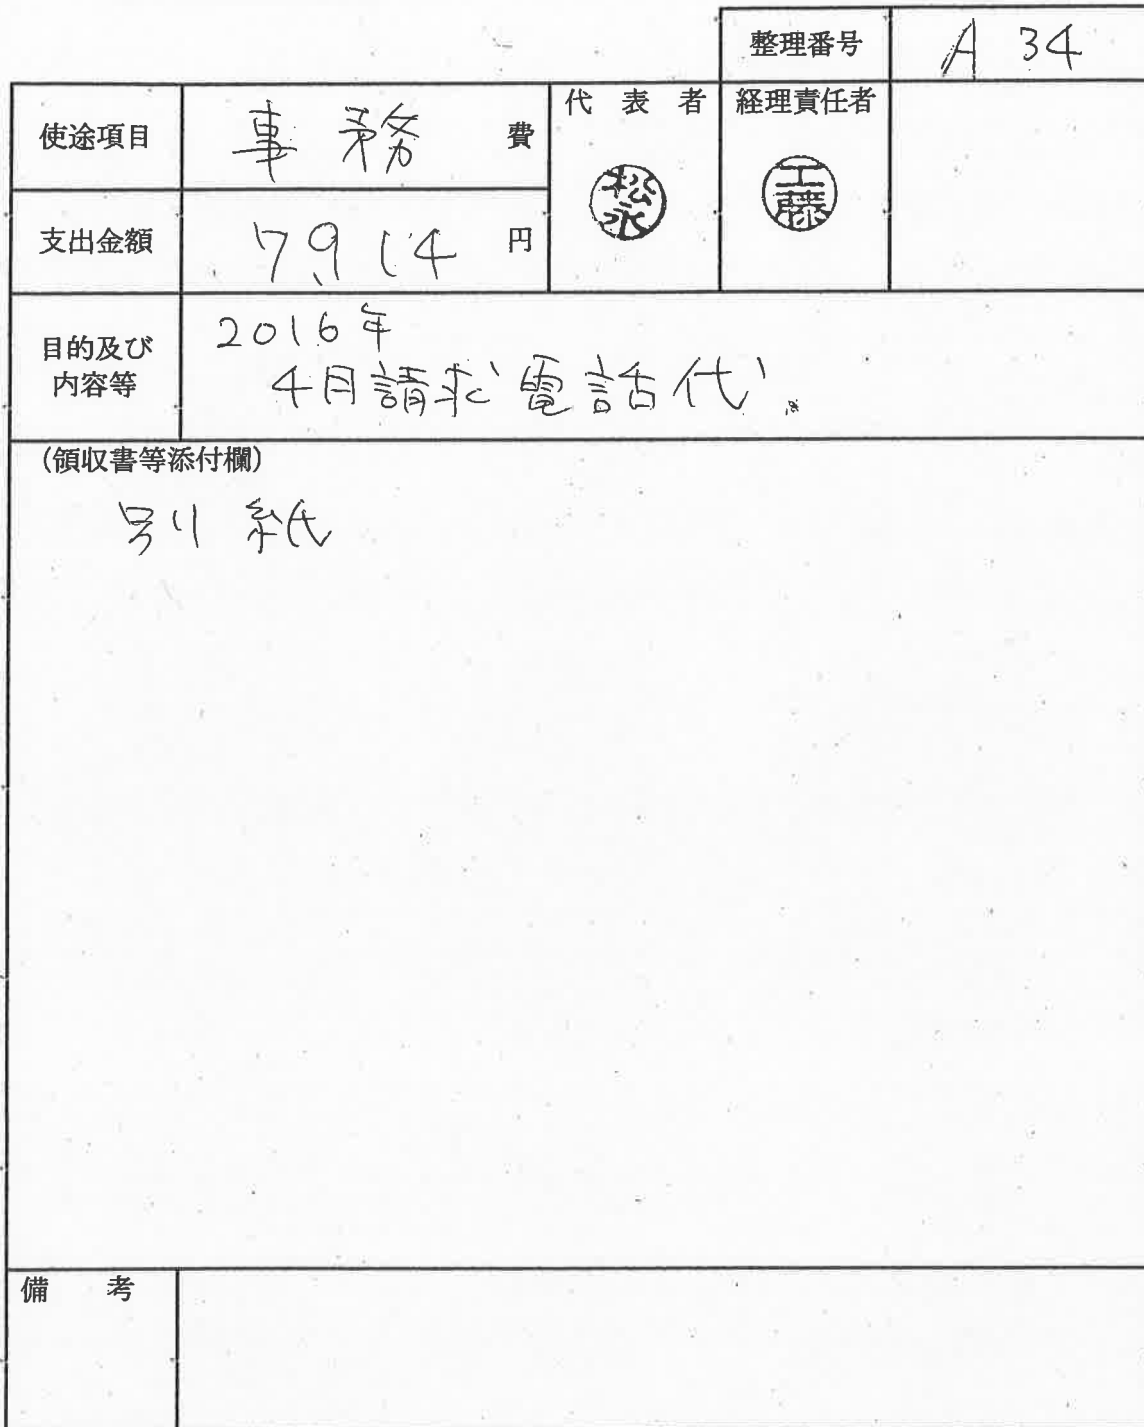 整理番号 A 34
使途項目 事務 費
代表者 経理責任者
松永 工藤
支出金額 7,914 円
目的及び内容等
2016年
4月請求電話代
(領収書等添付欄)
別紙
備考